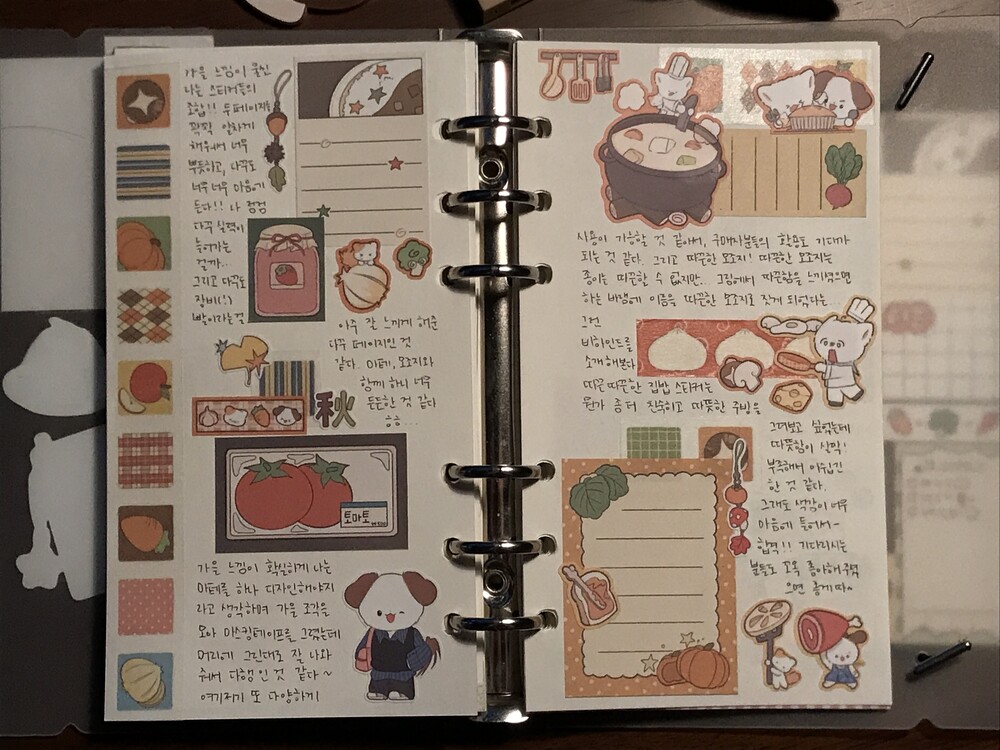 가을 느낌이 물씬
나는 스티커들의
조합!! 두 페이지를
꽉꽉 알차게
채워서 너무
뿌듯하고, 다꾸도
너무 너무 마음에
든다!! 나 점점
다꾸 실력이
늘어가는
걸까..
그리고 다꾸도
장비(!)
빨이라는 걸
아주 잘 느끼게 해준
다꾸 페이지인 것
같다. 마테, 모조지와
함께 하니 너무
든든한 것 같다
秋
토마토
가을 느낌이 확실하게 나는
마테를 하나 디자인해야지
라고 생각하며 가을 조각을
모아 마스킹테이프를 그렸는데
머리에 그린대로 잘 나와
줘서 다행인 것 같다~
여기저기 또 다양하게
사용이 가능할 것 같아서, 구매자분들의 활용도 기대가
되는 것 같다. 그리고 따끈한 모조지! 따끈한 모조지는
종이는 따끈할 수 없지만... 그림에서 따끈함을 느꼈으면
하는 바램에 이름을 따끈한 모조지로 짓게 되었다는...
그런
비하인드를
소개해본다
따끈따끈한 집밥 스티커는
뭔가 좀 더 진수하고 따뜻한 주방을
그려보고 싶었는데
따뜻함이 살짝!
부족해서 아쉽긴
한 것 같다.
그래도 색감이 너무
마음에 들어서~
합격!! 기다리시는
분들도 모두 좋아해 주셨
으면 좋겠다~